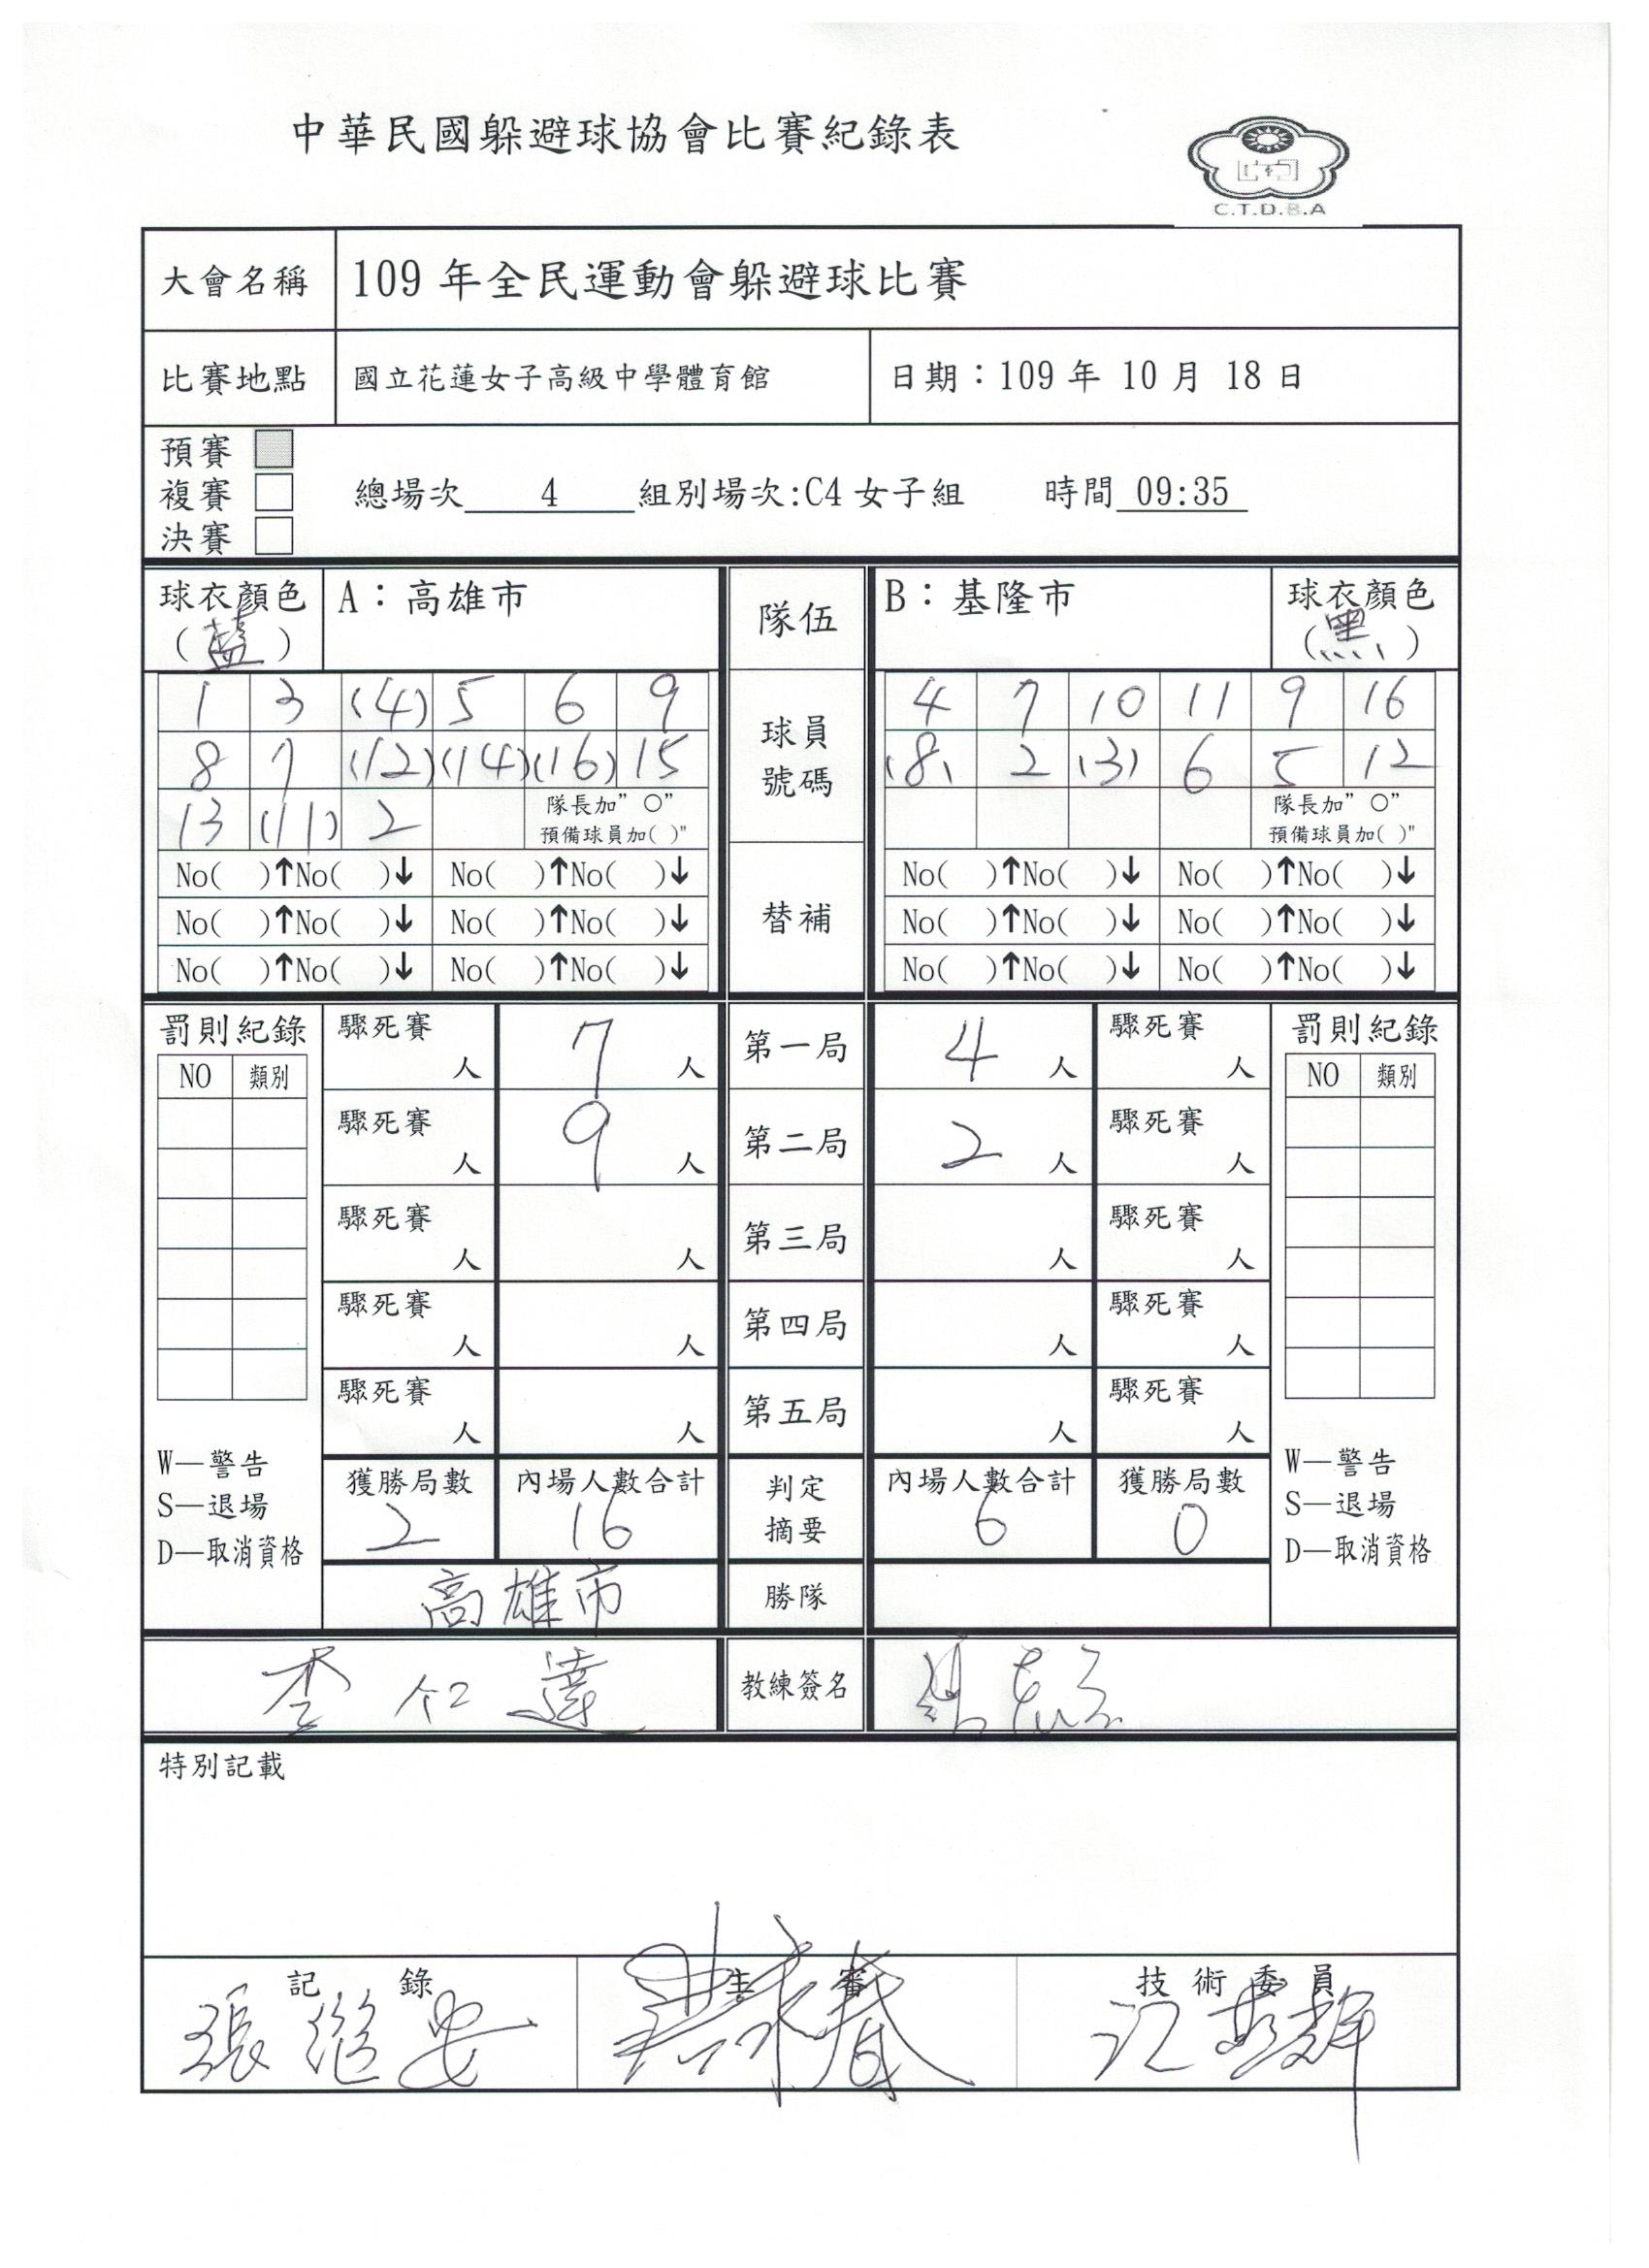 中華民國躲避球協會比賽紀錄表
C.T.D.B.A
大會名稱 109年全民運動會躲避球比賽
比賽地點 國立花蓮女子高級中學體育館 日期：109年 10月 18日
預賽
複賽 總場次 4 組別場次:C4女子組 時間 09:35
決賽
球衣顏色 A：高雄市 隊伍 B：基隆市 球衣顏色
(藍) (黑)
1 3 (4) 5 6 9 球員 4 7 10 11 9 16
8 7 (12) (14) (16) 15 號碼 (8) 2 (3) 6 5 12
13 (11) 2 隊長加"○" 隊長加"○"
預備球員加( )" 預備球員加( )"
No( )↑No( )↓ No( )↑No( )↓ No( )↑No( )↓ No( )↑No( )↓
No( )↑No( )↓ No( )↑No( )↓ 替補 No( )↑No( )↓ No( )↑No( )↓
No( )↑No( )↓ No( )↑No( )↓ No( )↑No( )↓ No( )↑No( )↓
罰則紀錄 驟死賽 人 7 人 第一局 4 人 驟死賽 人 罰則紀錄
NO 類別 NO 類別
驟死賽 人 9 人 第二局 2 人 驟死賽 人
驟死賽 人 人 第三局 人 驟死賽 人
驟死賽 人 人 第四局 人 驟死賽 人
驟死賽 人 人 第五局 人 驟死賽 人
W—警告 W—警告
S—退場 S—退場
D—取消資格 D—取消資格
獲勝局數 內場人數合計 判定 內場人數合計 獲勝局數
2 16 摘要 6 0
高雄市 勝隊
李仁達 教練簽名
特別記載
記錄 主審 技術委員
張繼安